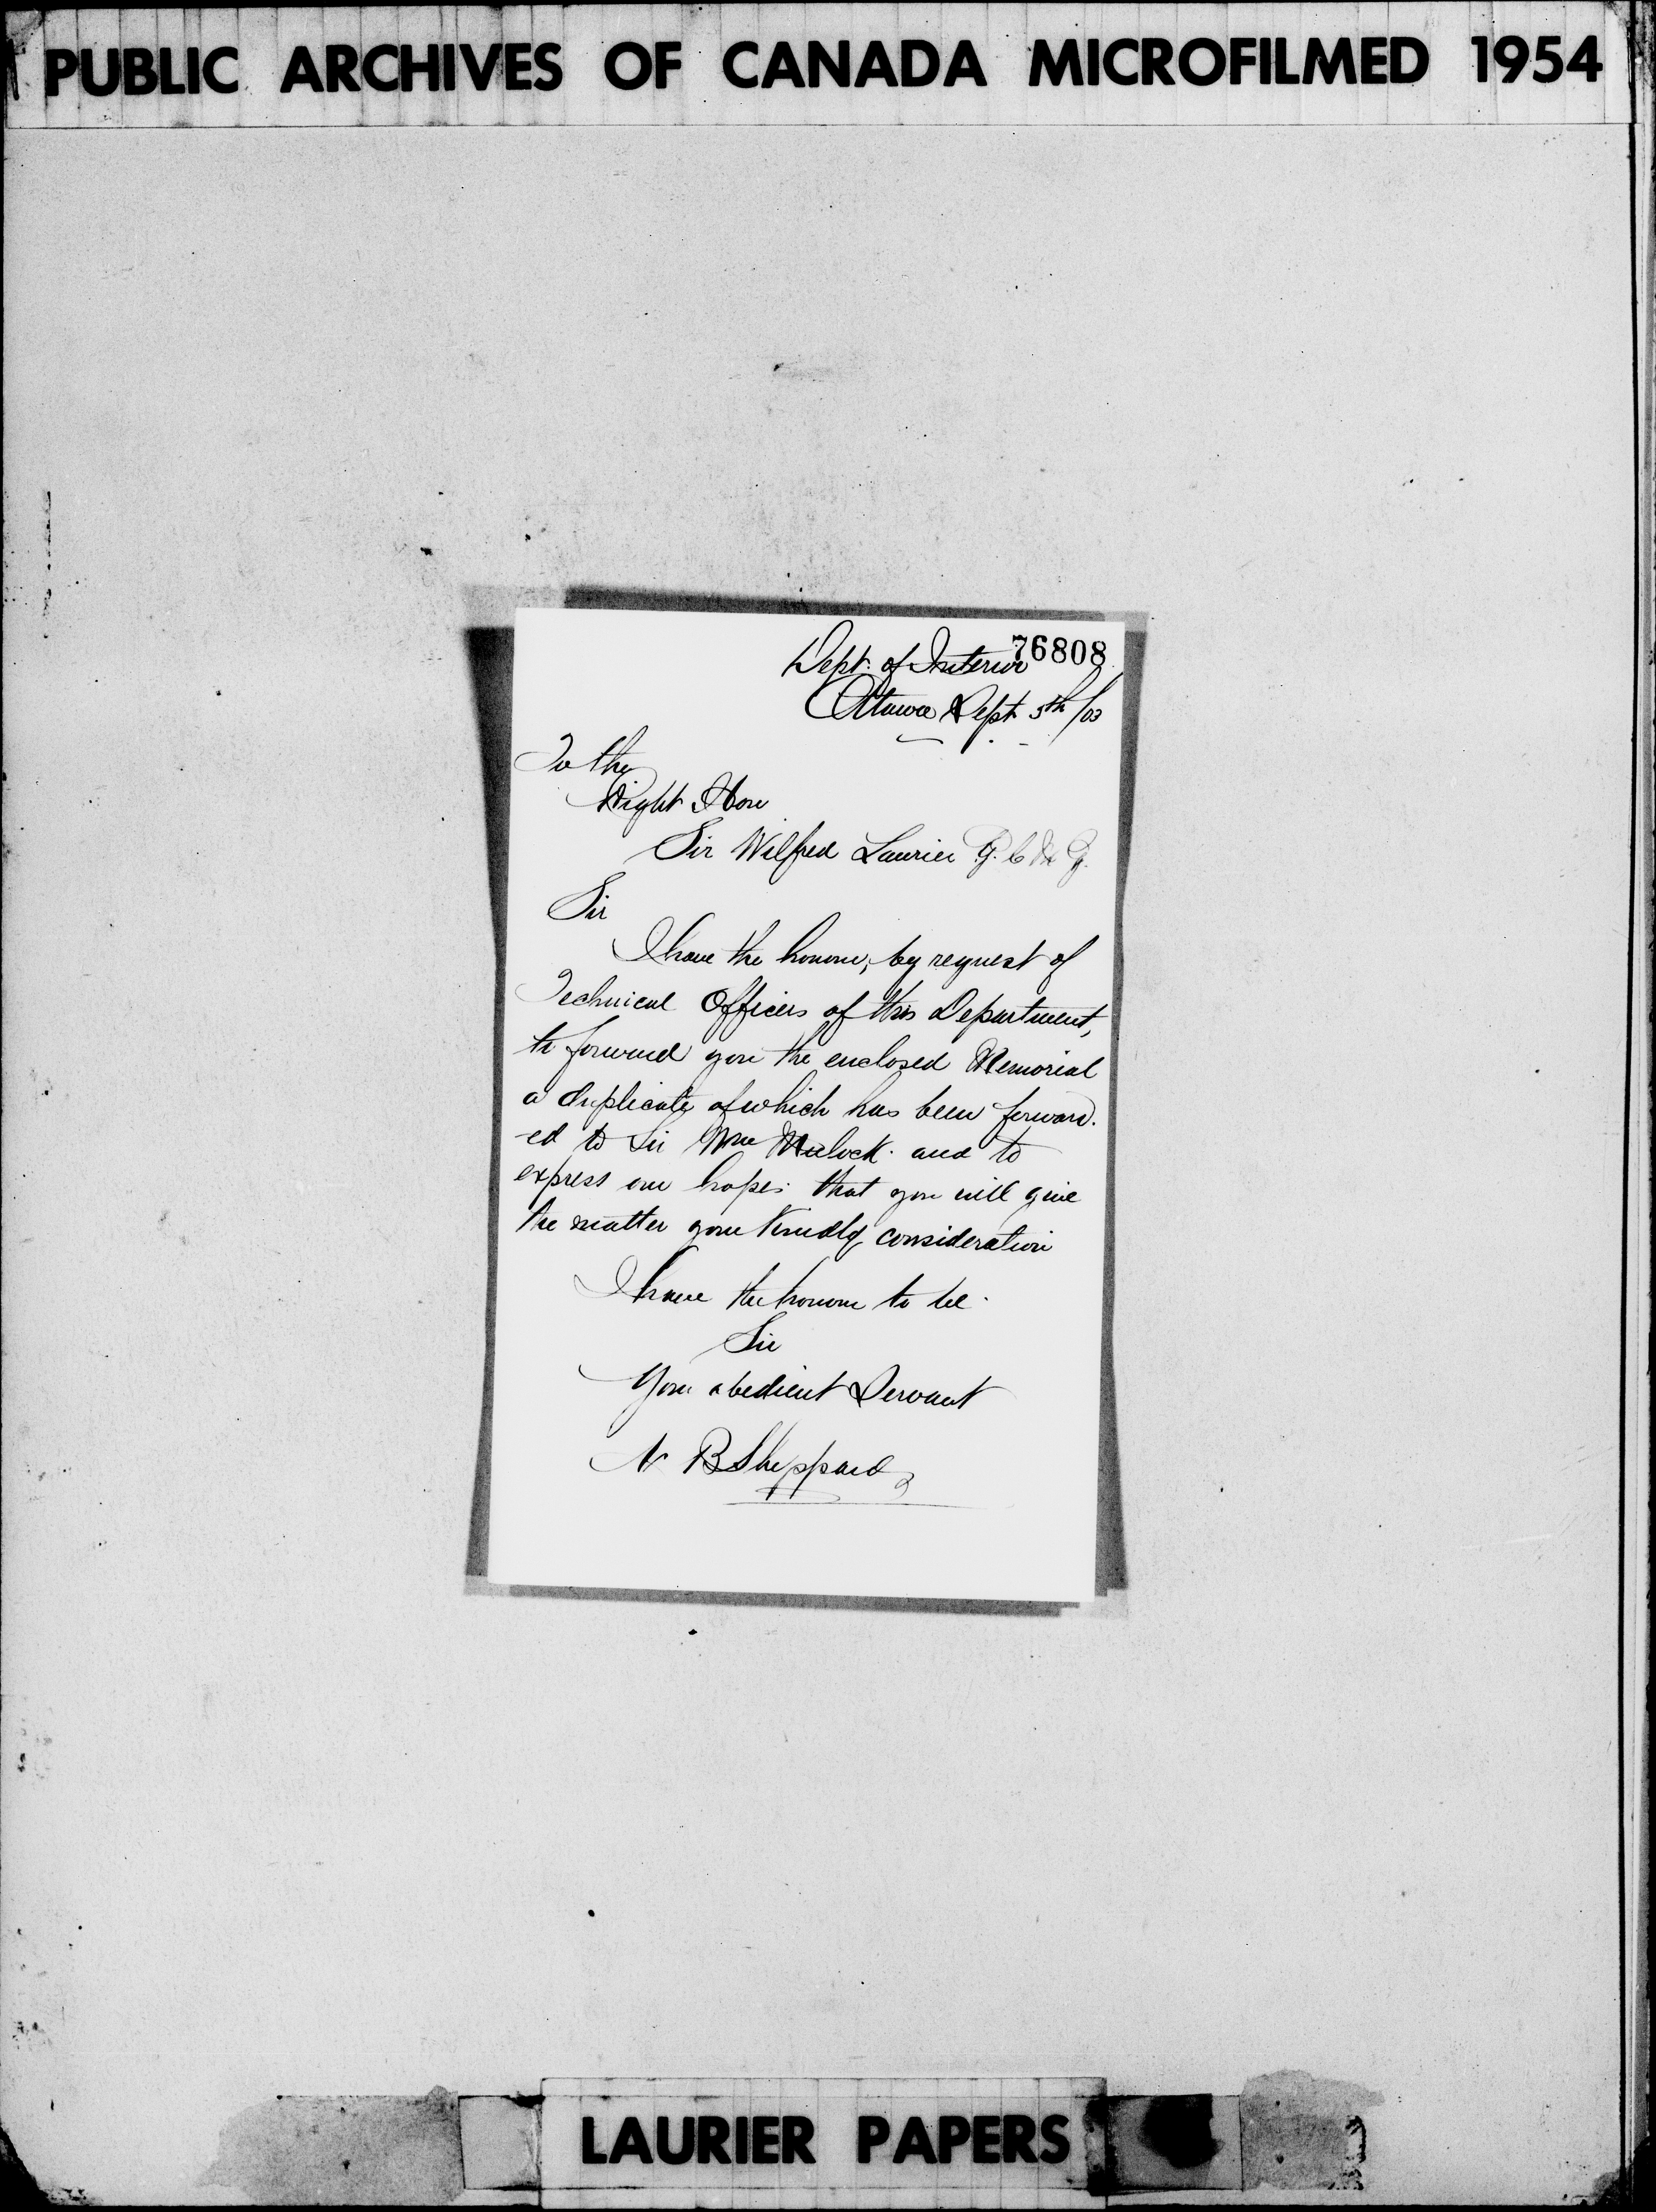 PUBLIC ARCHIVES OF CANADA MICROFILMED 1954
76808
Dept. of Interior
Ottawa Sept 5th /03
To the
Right Hon
Sir Wilfred Laurier G. C M G.
Sir
I have the honour, by request of
Technical Officers of this Department,
to forward you the enclosed Memorial
a duplicate of which has been forward.
-ed to Sir Wm Mulock. and to
express our hopes that you will give
the matter your kindly consideration
I have the honour to be.
Sir
Your obedient Servant
N B Sheppard
LAURIER PAPERS